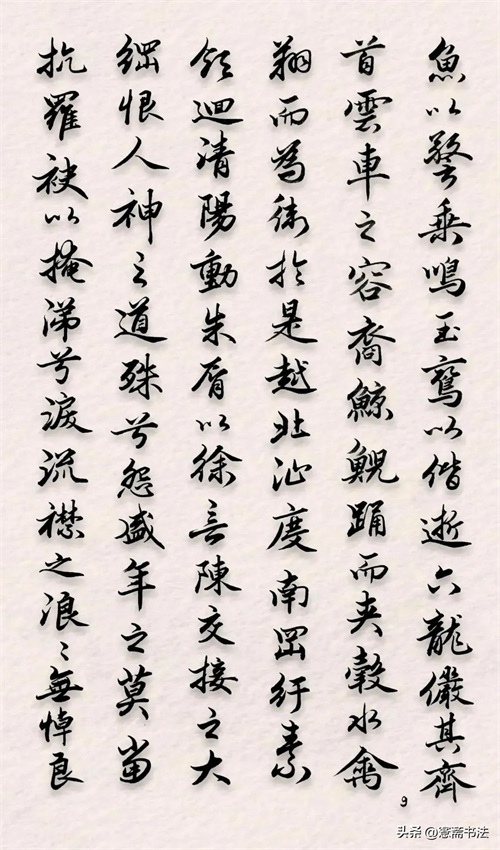 魚以警乗鳴玉鸞以偕逝六龍儼其齊
首雲車之容裔鯨鯢踊而夾轂水禽
翔而為衛於是越北沚度南岡紆素
領迴清陽動朱脣以徐言陳交接之大
綱恨人神之道殊兮怨盛年之莫當
抗羅袂以掩涕兮淚流襟之浪〻無悼良
9
头条@斋书法